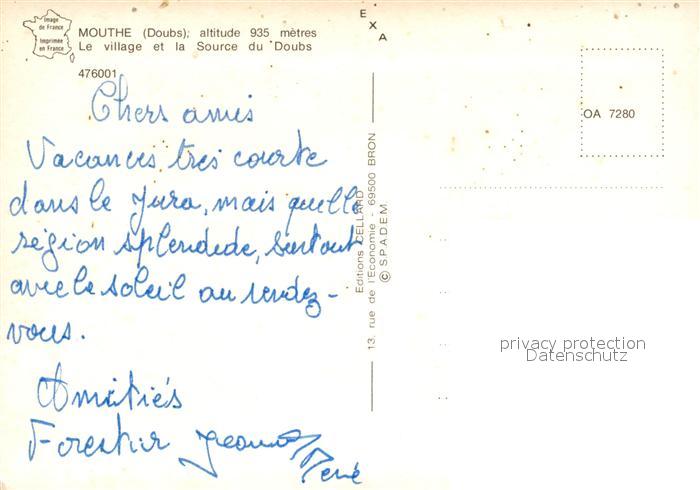 Image
de France
Imprimée
en France
MOUTHE (Doubs); altitude 935 mètres
Le village et la Source du Doubs
476001
E X A
OA 7280
Chers amis
Vacances tres courte
dans le Jura, mais quelle
région splendide, surtout
avec le soleil au rendez-
vous.
Amitiés
Forestier
René
Editions CELLARD
13, rue de l'Economie - 69500 BRON
© SPADEM
privacy protection
Datenschutz